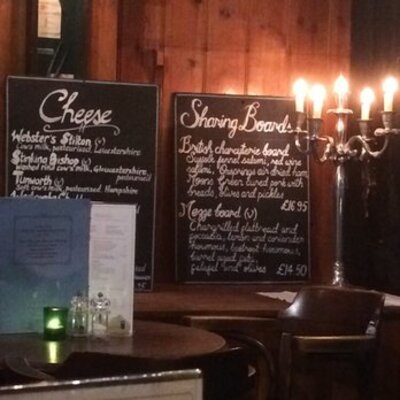 Cheese
Webster's Stilton (v)
Cow's milk, pasteurised, Leicestershire
Stinking Bishop (v)
Washed rind cow's milk, Gloucestershire
pasteurised
Tunworth (v)
Soft cow's milk, pasteurised, Hampshire
Sharing Boards
British charcuterie board
Suffolk fennel salami, red wine
salami, air dried ham
Moons Green cured pork with
breads, olives and pickles
£16.95
Mezze board (v)
Chargrilled flatbread and
focaccia, lemon and coriander
houmous, beetroot houmous,
falafel and olives £14.50